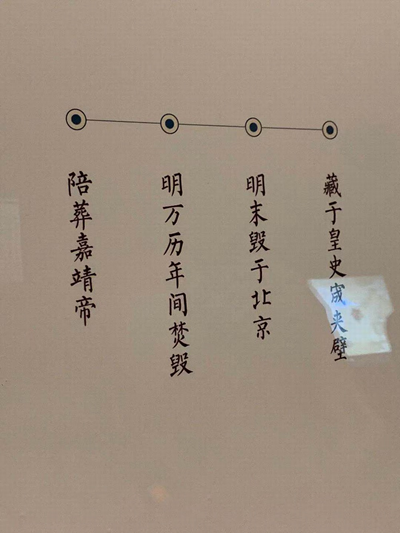 陪葬嘉靖帝
明万历年间焚毁
明末毁于北京
藏于皇史宬夹壁